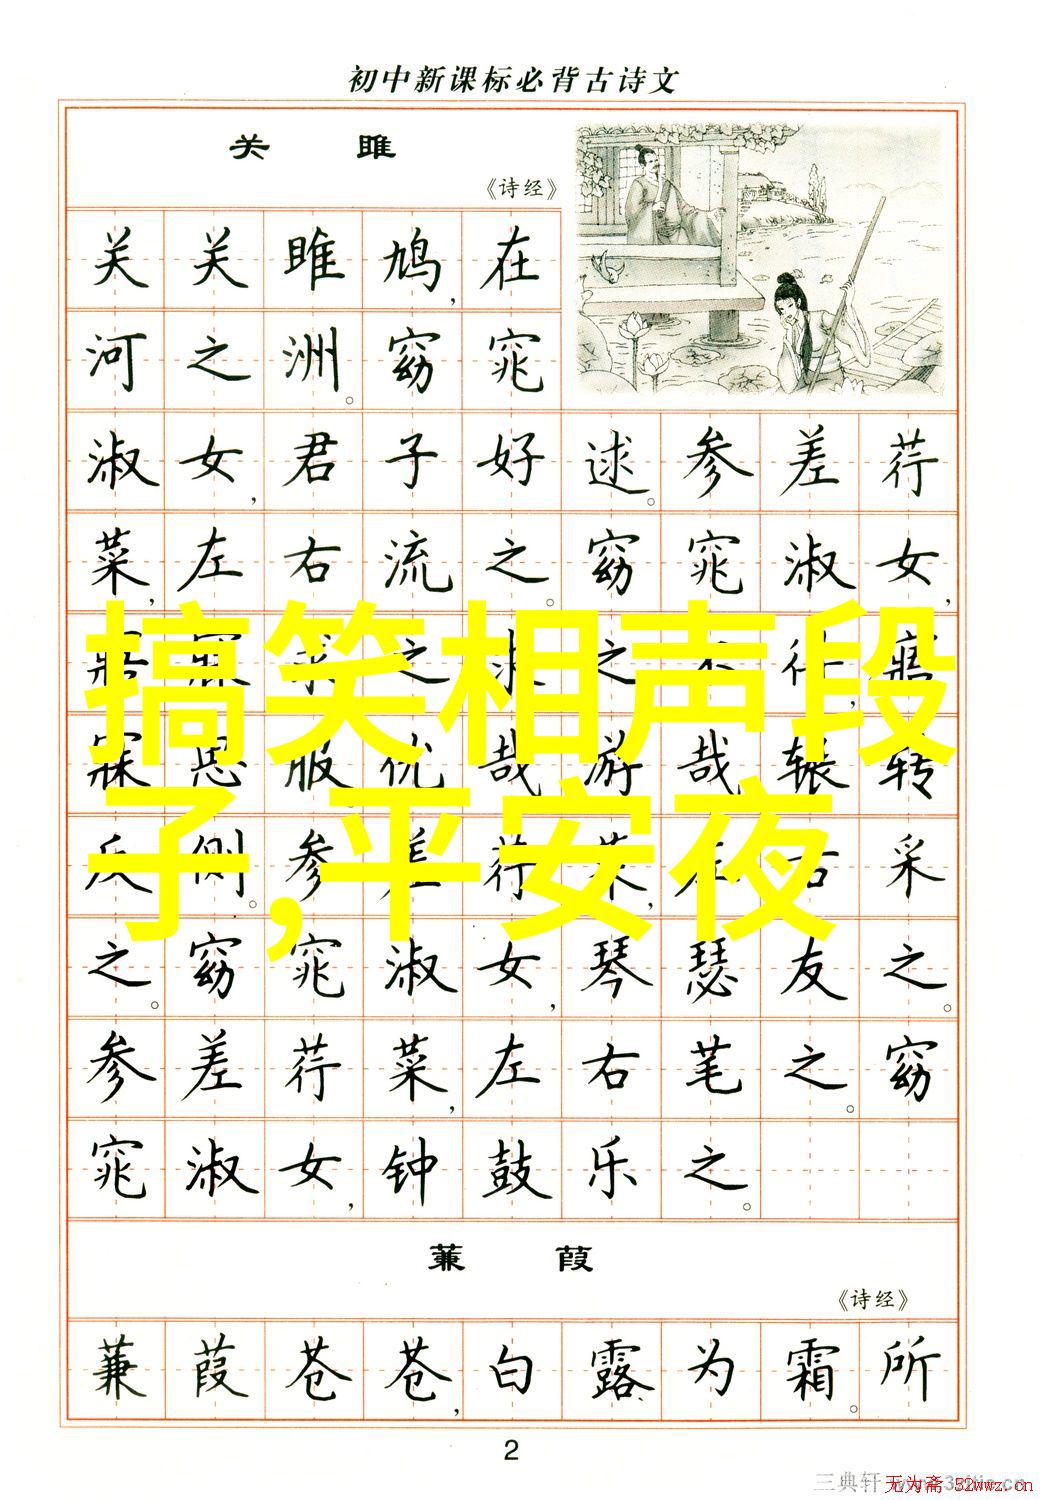 初中新课标必背古诗文
关 雎
《诗经》
关关雎鸠,在
河之洲。窈窕
淑女,君子好逑。参差荇
菜,左右流之。窈窕淑女,
寤寐求之
搞笑相声段
寐思服 优哉游哉 辗转
子,平安夜
反侧。参差荇菜,左右采
之。窈窕淑女,琴瑟友之。
参差荇菜,左右芼之。窈
窕淑女,钟鼓乐之。
蒹 葭
《诗经》
蒹葭苍苍,白露为霜。所
2
三典轩
无为斋 52wwz.cn